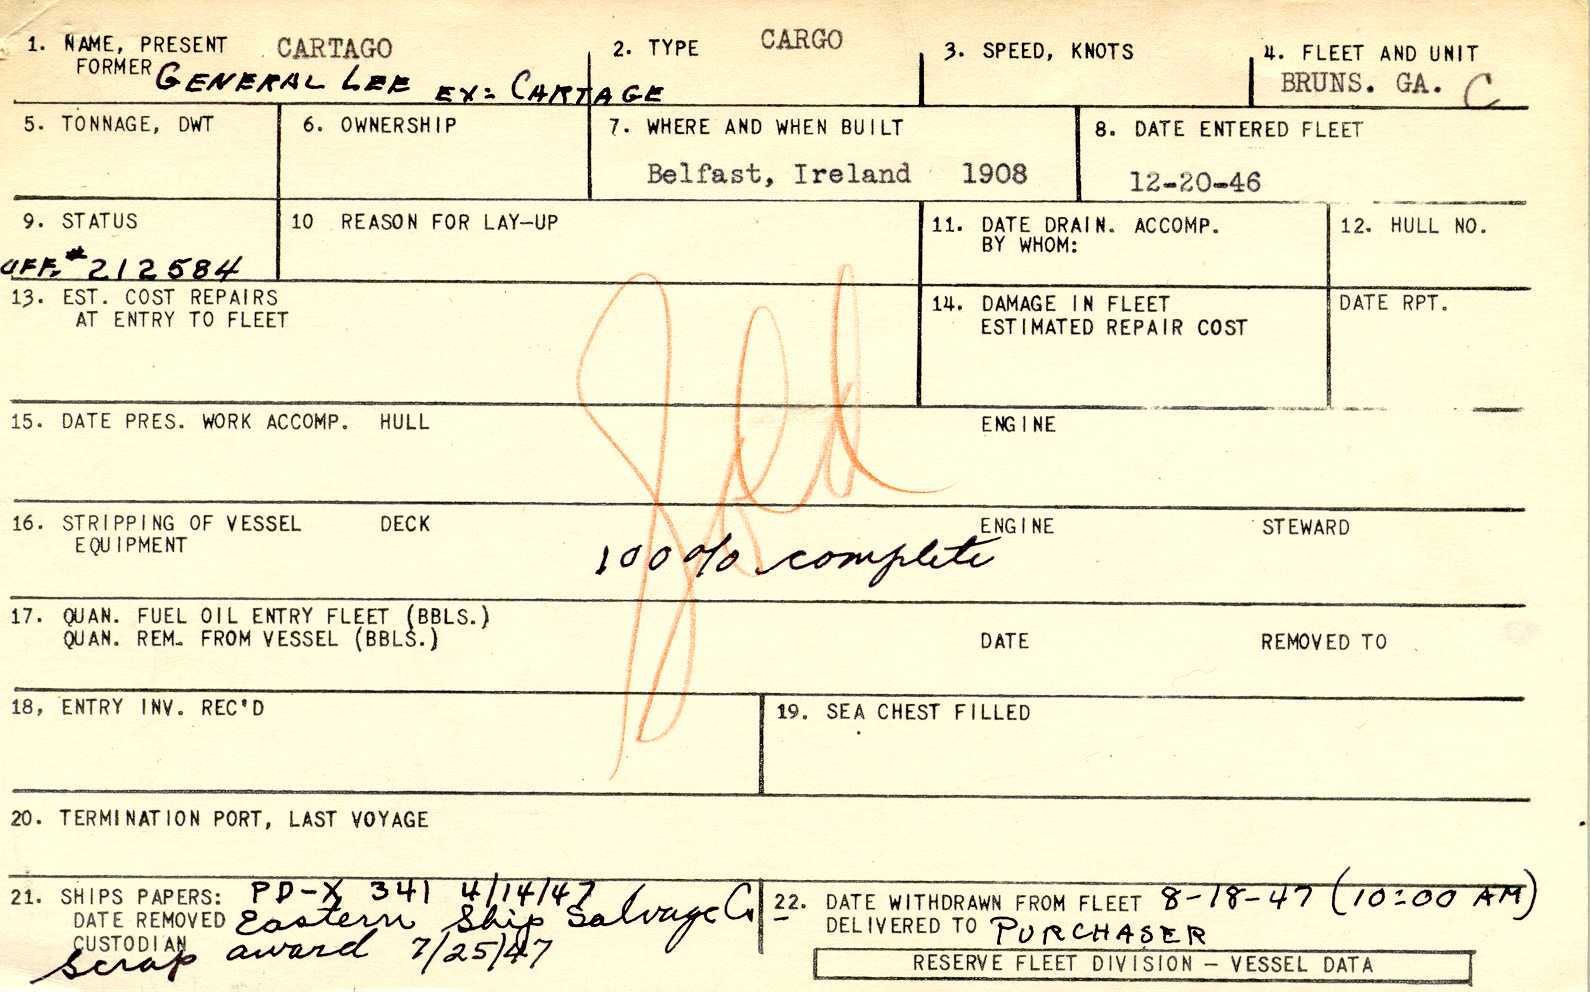 1. NAME, PRESENT CARTAGO
FORMER GENERAL LEE EX: CARTAGE
2. TYPE CARGO
3. SPEED, KNOTS
4. FLEET AND UNIT
BRUNS. GA. C
5. TONNAGE, DWT
6. OWNERSHIP
7. WHERE AND WHEN BUILT
Belfast, Ireland 1908
8. DATE ENTERED FLEET
12-20-46
9. STATUS
OFF. # 212584
10 REASON FOR LAY-UP
11. DATE DRAIN. ACCOMP.
BY WHOM:
12. HULL NO.
13. EST. COST REPAIRS
AT ENTRY TO FLEET
14. DAMAGE IN FLEET
ESTIMATED REPAIR COST
DATE RPT.
Sold
15. DATE PRES. WORK ACCOMP. HULL ENGINE
16. STRIPPING OF VESSEL DECK ENGINE STEWARD
EQUIPMENT
100% complete
17. QUAN. FUEL OIL ENTRY FLEET (BBLS.)
QUAN. REM. FROM VESSEL (BBLS.) DATE REMOVED TO
18, ENTRY INV. REC'D
19. SEA CHEST FILLED
20. TERMINATION PORT, LAST VOYAGE
21. SHIPS PAPERS: PD-X 341 4/14/47
DATE REMOVED Eastern Ship Salvage Co.
CUSTODIAN
Scrap award 7/25/47
22. DATE WITHDRAWN FROM FLEET 8-18-47 (10:00 AM)
DELIVERED TO PURCHASER
RESERVE FLEET DIVISION - VESSEL DATA